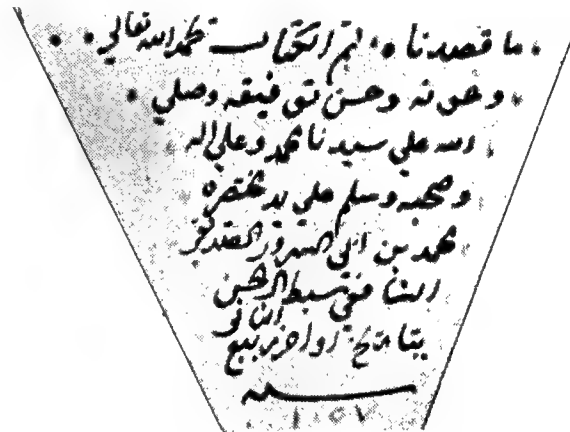 ما قصدنا • تم الكتاب بحمد الله تعالى
وعونه وحسن توفيقه وصلى
الله على سيدنا محمد وعلى اله
وصحبه وسلم على يد مختصره
محمد بن ابى السرور الصديقى
الشافعى سبط الحسن
بتاريخ اواخر ربيع الثانى
سنه
١٠٥٧